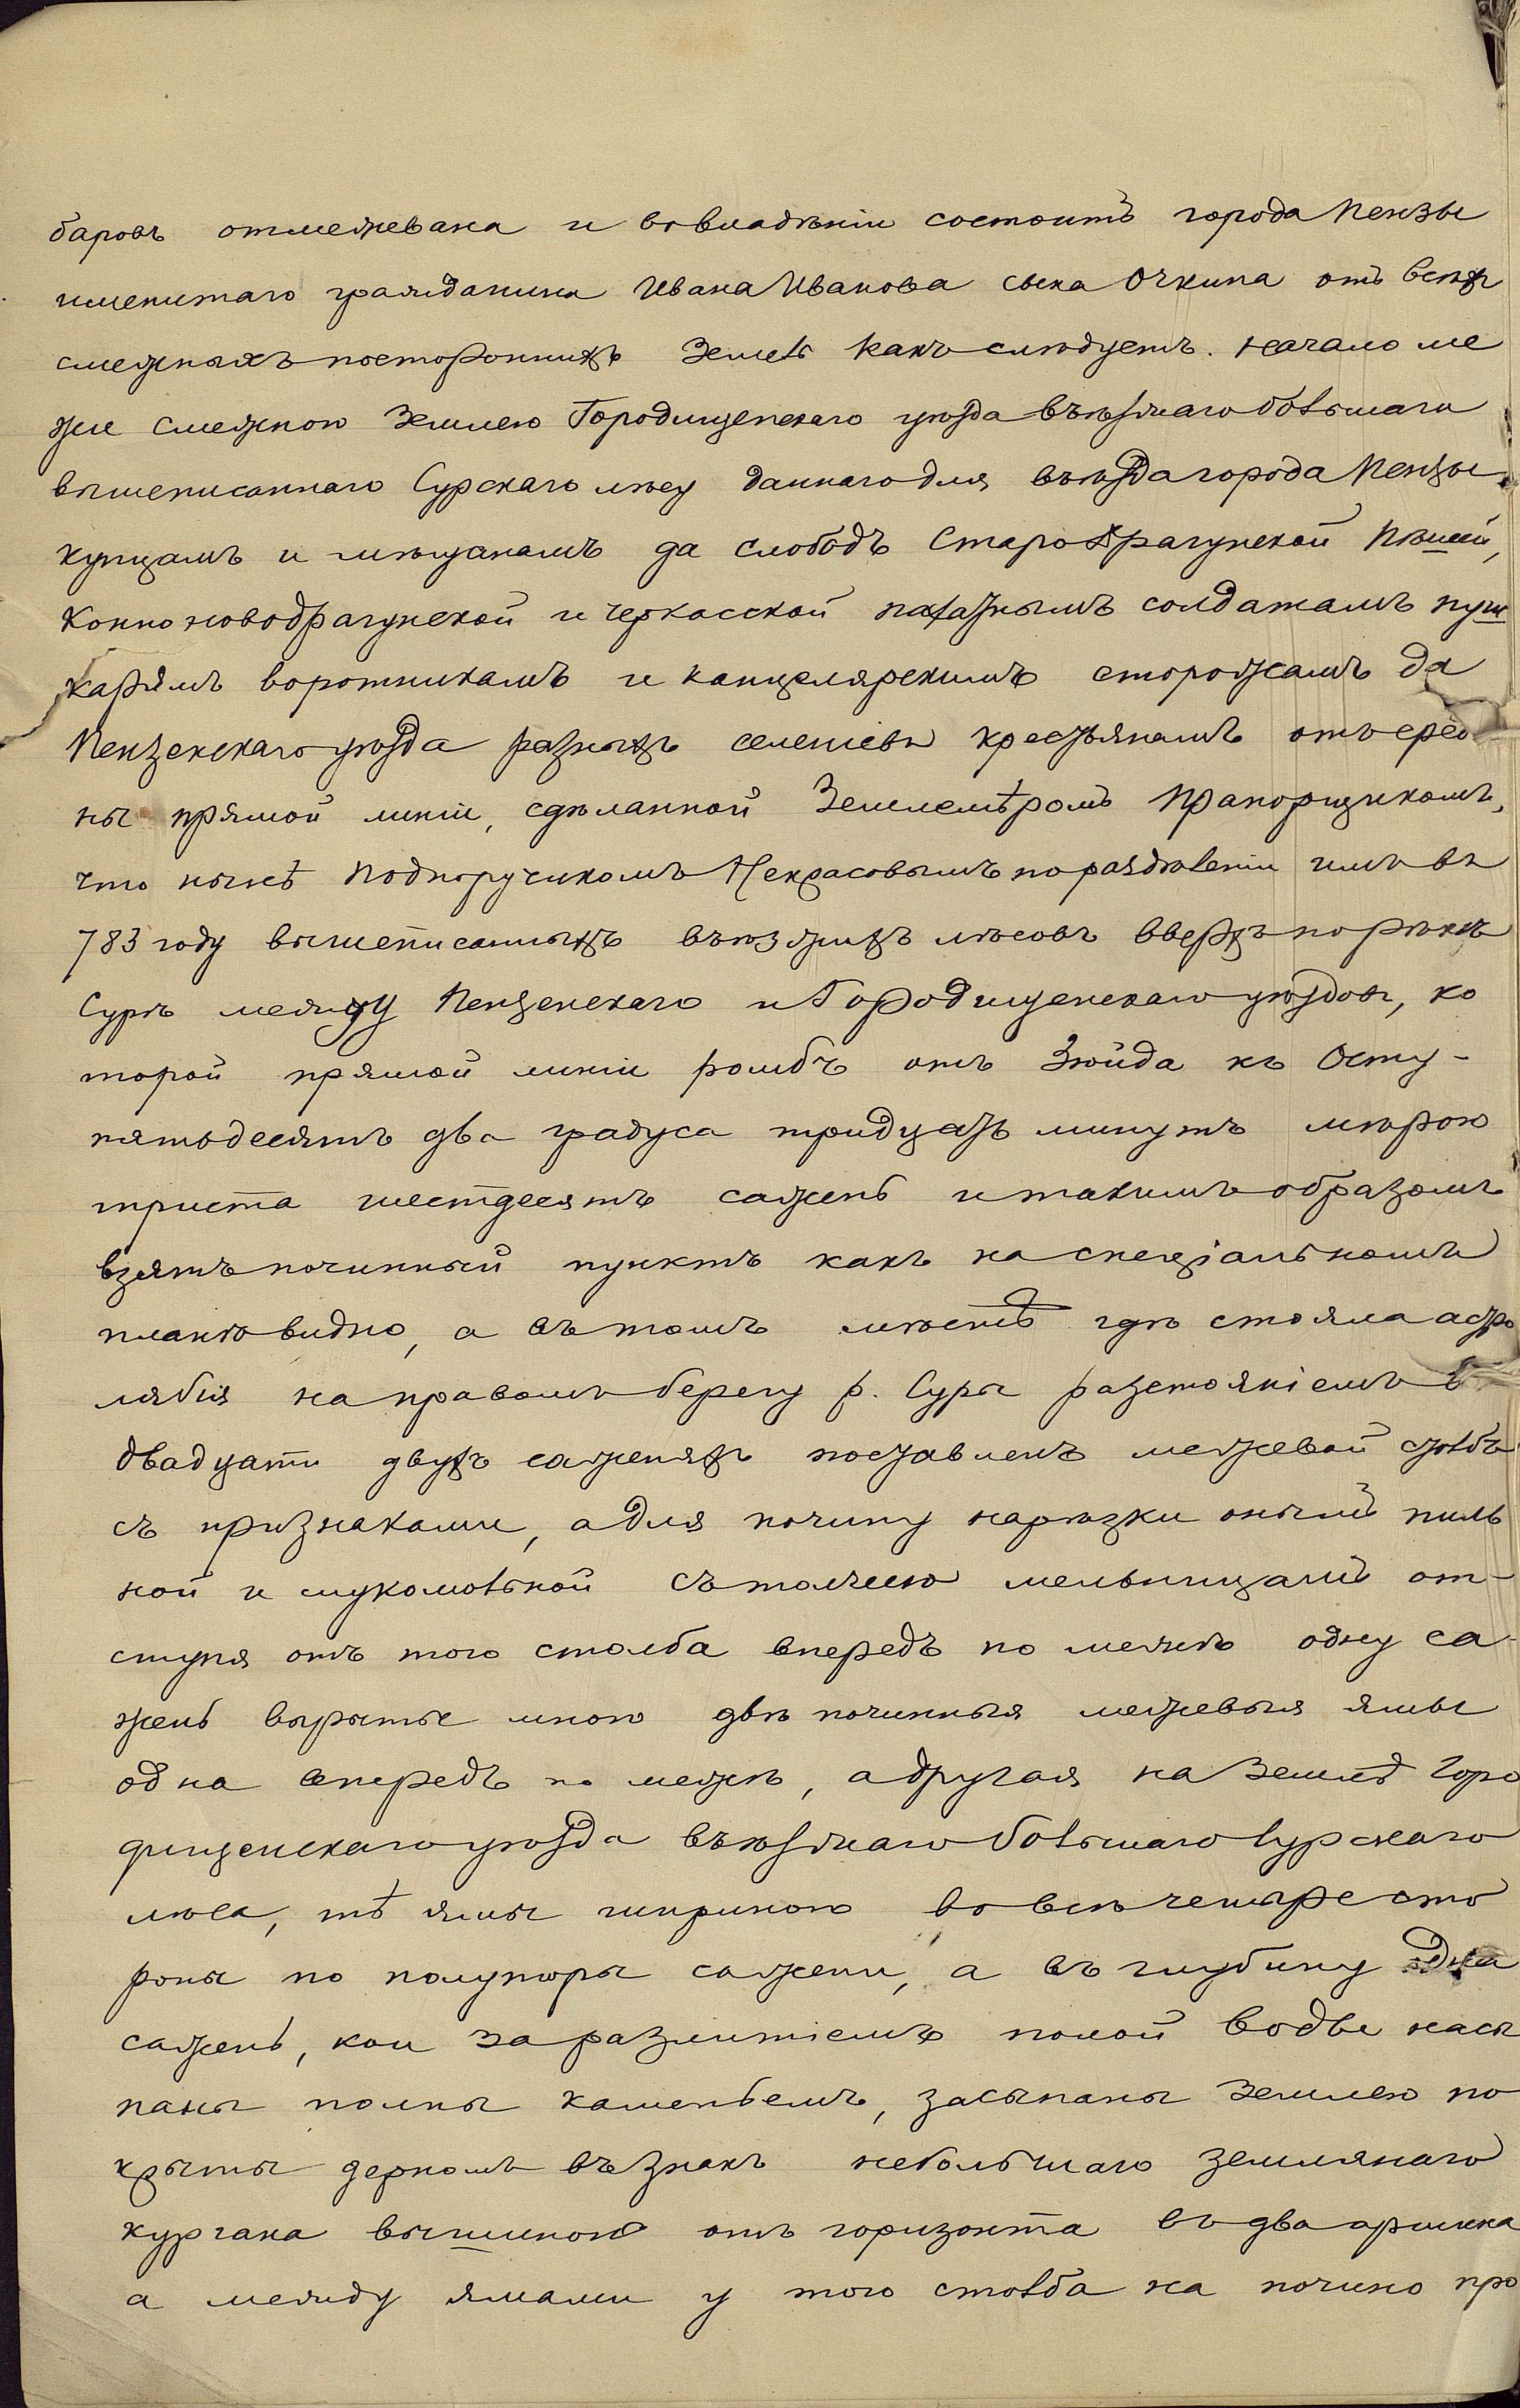 баровъ отмежевана и во владѣніи состоитъ города Пензы
именитаго гражданина Ивана Иванова сына Очкина отъ всѣхъ
смежныхъ постороннихъ земель какъ слѣдуетъ. Начало ме
же смежною землею Городищенскаго уѣзда въѣзжаго большаго
вышеписаннаго Сурскаго лѣсу даннаго для въѣзда города Пензы
купцамъ и мѣщанамъ да слободъ Стародрагунской Пѣшей,
Конно новодрагунской и Черкасской пахатнымъ солдатамъ пуш
карямъ воротникамъ и канцелярскимъ сторожамъ да
Пензенскаго уѣзда разныхъ селеніевъ крестьянамъ отъ среди
ны прямой линіи, сдѣланной Землемѣромъ Прапорщикомъ,
что нынѣ Подпоручикомъ Некрасовымъ по раздѣленіи имъ въ
783 году вышеписанныхъ въѣзжихъ лѣсовъ вверхъ по рѣкѣ
Сурѣ между Пензенскаго и Городищенскаго уѣздовъ, ко
торой прямой линіи ромбъ отъ Зюйда къ Осту-
пятьдесятъ два градуса тридцать минутъ мѣрою
триста шестдесятъ сажень и такимъ образомъ
взятъ починный пунктъ какъ на спеціальномъ
планѣ видно, а въ томъ мѣстѣ гдѣ стояла астро
лябія на правомъ берегу р. Суры разстояніемъ въ
двадцати двухъ саженяхъ поставленъ межевой столбъ
съ признаками, а для почину нарѣзки оными пиль
ной и мукомольной съ толчеею мельницами от-
ступя отъ того столба впередъ по межѣ одну са-
жень вырыты мною двѣ починныя межевыя ямы
одна впередъ по межѣ, а другая на землѣ Горо
дищенскаго уѣзда въѣзжаго большаго Сурскаго
лѣса, тѣ ямы шириною во всѣ четыре сто
роны по полуторы сажени, а въ глубину одна
сажень, кои за разлитіемъ полой воды насы
паны полны каменьемъ, засыпаны землею по
крыты дерномъ въ знакъ небольшаго землянаго
кургана вышиною отъ горизонта въ два аршина
а между ямами у того столба на починѣ про